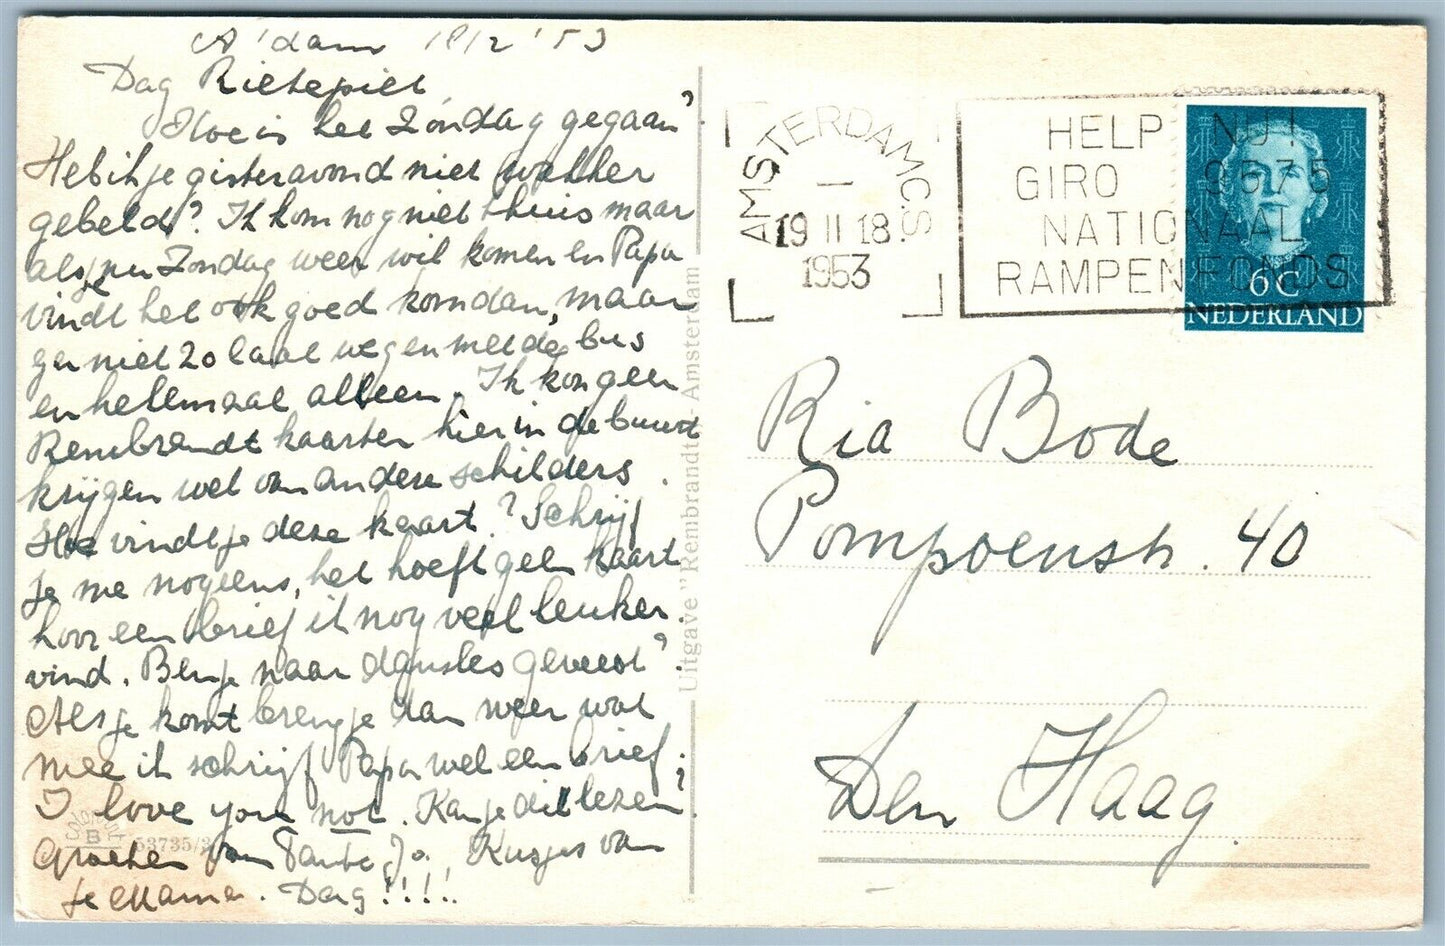 A'dam 18/2 '53
Dag Rietepiet
Hoe is het Zondag gegaan?
Heb ik je gisteravond niet wakker
gebeld? Ik kom nog niet thuis maar
als je nu Zondag weer wil komen en Papa
vindt het ook goed kom dan, maar
ga niet zo laat weg en met de bus
en helemaal alleen. Ik kon geen
Rembrandt kaarten hier in de buurt
krijgen wel van andere schilders.
Hoe vindt je deze kaart? Schrijf
je me nog eens, het hoeft geen kaart
hoor een brief ik nog veel leuker
vind. Ben je naar dansles geweest?
Als je komt breng je dan weer wat
mee ik schrijf Papa wel een brief.
I love you not. Kan je dit lezen?
Groeten van Tante Jo. Kusjes van
je Mama. Dag!!!!
53735/3
Uitgave "Rembrandt" - Amsterdam
AMSTERDAM C.S.
19 II 18.
1953
HELP NU!
GIRO 9575
NATIONAAL
RAMPENFONDS
6 C
NEDERLAND
Ria Bode
Pompoenstr. 40
Den Haag